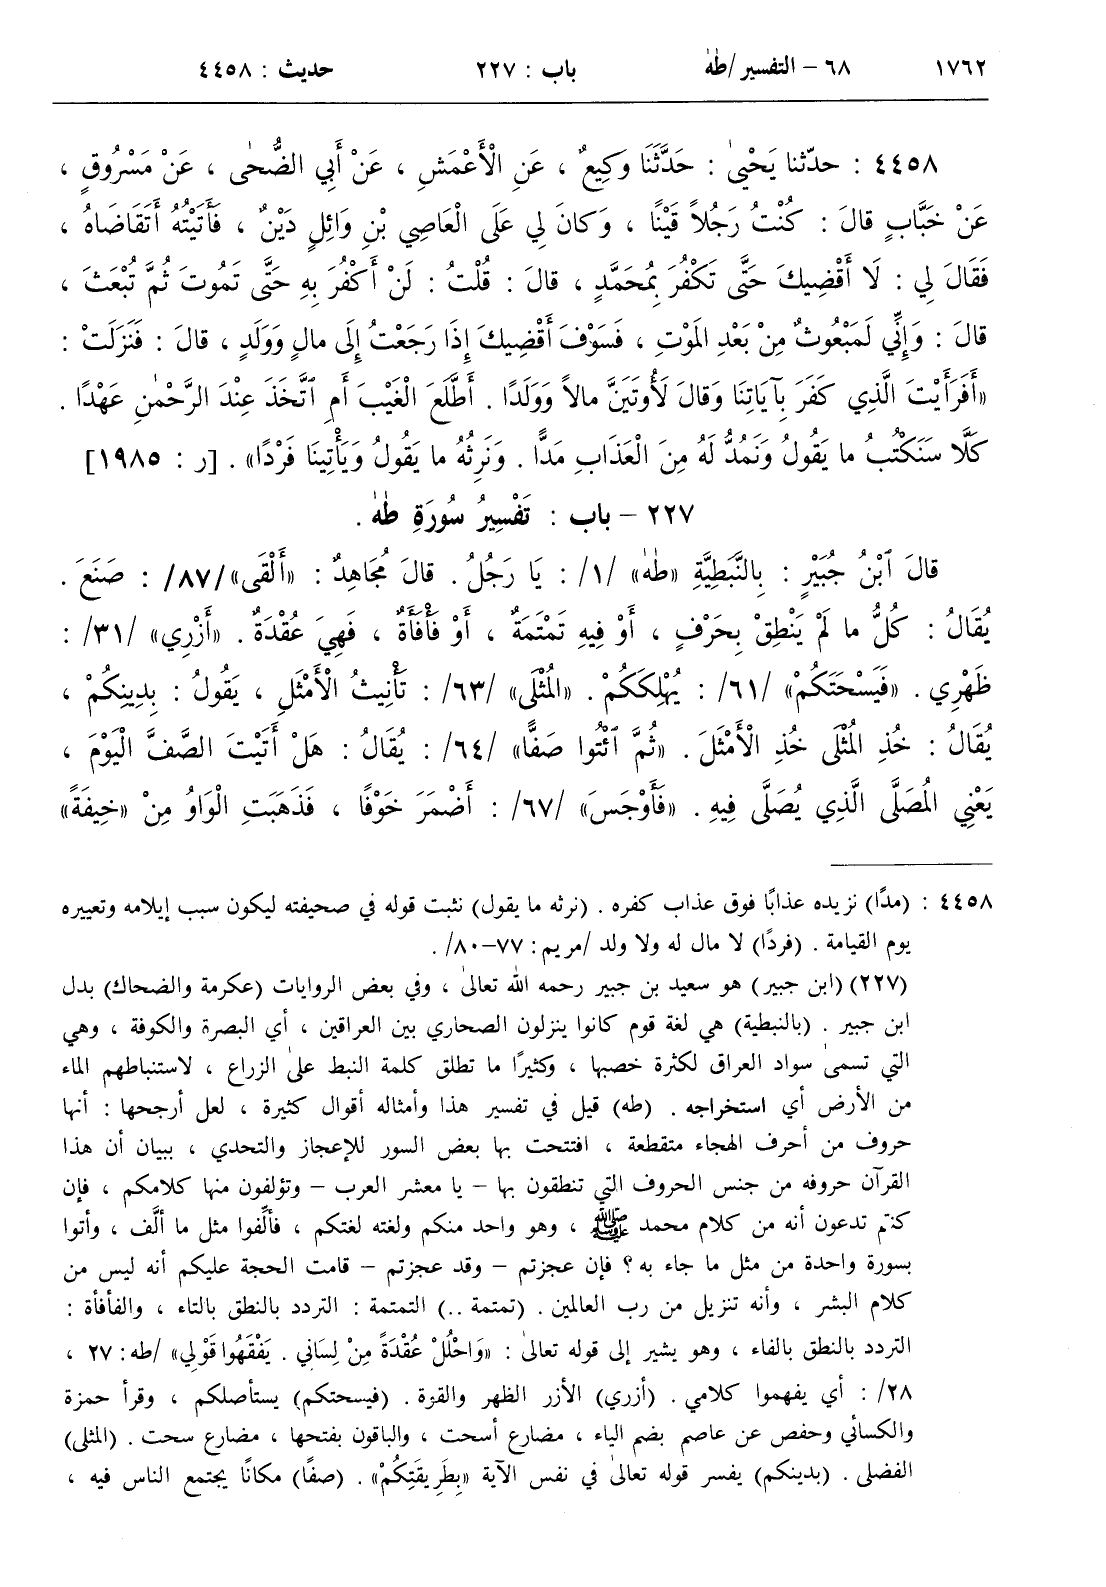 ١٧٦٢ ٦٨ – التفسير/طهٰ باب : ٢٢٧ حديث : ٤٤٥٨
٤٤٥٨ : حدّثنا يَحْيىٰ : حَدَّثَنَا وَكِيعٌ ، عَنِ الْأَعْمَشِ ، عَنْ أَبِي الضُّحٰى ، عَنْ مَسْرُوقٍ ،
عَنْ خَبَّابٍ قالَ : كُنْتُ رَجُلاً قَيْنًا ، وَكانَ لِي عَلَى الْعَاصِي بْنِ وَائِلٍ دَيْنٌ ، فَأَتَيْتُهُ أَتَقَاضَاهُ ،
فَقَالَ لِي : لَا أَقْضِيكَ حَتَّى تَكْفُرَ بِمُحَمَّدٍ ، قالَ : قُلْتُ : لَنْ أَكْفُرَ بِهِ حَتَّى تَمُوتَ ثُمَّ تُبْعَثَ ،
قالَ : وَإِنِّي لَمَبْعُوثٌ مِنْ بَعْدِ المَوْتِ ، فَسَوْفَ أَقْضِيكَ إِذَا رَجَعْتُ إِلَى مالٍ وَوَلَدٍ ، قالَ : فَنَزَلَتْ :
«أَفَرَأَيْتَ الَّذِي كَفَرَ بِآيَاتِنَا وَقالَ لَأُوتَيَنَّ مالاً وَوَلَدًا . أَطَّلَعَ الْغَيْبَ أَمِ ٱتَّخَذَ عِنْدَ الرَّحْمٰنِ عَهْدًا .
كَلَّا سَنَكْتُبُ ما يَقُولُ وَنَمُدُّ لَهُ مِنَ الْعَذَابِ مَدًّا . وَنَرِثُهُ ما يَقُولُ وَيَأْتِينَا فَرْدًا» . [ر : ١٩٨٥]
٢٢٧ – باب : تَفْسِيرُ سُورَةِ طهٰ .
قالَ ٱبْنُ جُبَيْرٍ : بِالنَّبَطِيَّةِ «طهٰ» /١/ : يَا رَجُلُ . قالَ مُجَاهِدٌ : «أَلْقَى»/٨٧/ : صَنَعَ .
يُقَالُ : كُلُّ ما لَمْ يَنْطِقْ بِحَرْفٍ ، أَوْ فِيهِ تَمْتَمَةٌ ، أَوْ فَأْفَأَةٌ ، فَهِيَ عُقْدَةٌ . «أَزْرِي» /٣١/ :
ظَهْرِي . «فَيَسْحَتَكُمْ» /٦١/ : يُهْلِكَكُمْ . «المُثْلَى» /٦٣/ : تَأْنِيثُ الْأَمْثَلِ ، يَقُولُ : بِدِينِكُمْ ،
يُقَالُ : خُذِ المُثْلَى خُذِ الْأَمْثَلَ . «ثُمَّ ٱئْتُوا صَفًّا» /٦٤/ : يُقَالُ : هَلْ أَتَيْتَ الصَّفَّ الْيَوْمَ ،
يَعْنِي المُصَلَّى الَّذِي يُصَلَّى فِيهِ . «فَأَوْجَسَ» /٦٧/ : أَضْمَرَ خَوْفًا ، فَذَهَبَتِ الْوَاوُ مِنْ «خِيفَةً»
٤٤٥٨ : (مدًا) نزيده عذابًا فوق عذاب كفره . (نرثه ما يقول) نثبت قوله في صحيفته ليكون سبب إيلامه وتعييره
يوم القيامة . (فردًا) لا مال له ولا ولد /مريم: ٧٧–٨٠/ .
(٢٢٧) (ابن جبير) هو سعيد بن جبير رحمه الله تعالىٰ ، وفي بعض الروايات (عكرمة والضحاك) بدل
ابن جبير . (بالنبطية) هي لغة قوم كانوا ينزلون الصحاري بين العراقين ، أي البصرة والكوفة ، وهي
التي تسمىٰ سواد العراق لكثرة خصبها ، وكثيرًا ما تطلق كلمة النبط علىٰ الزراع ، لاستنباطهم الماء
من الأرض أي استخراجه . (طه) قيل في تفسير هذا وأمثاله أقوال كثيرة ، لعل أرجحها : أنها
حروف من أحرف الهجاء متقطعة ، افتتحت بها بعض السور للإعجاز والتحدي ، ببيان أن هذا
القرآن حروفه من جنس الحروف التي تنطقون بها – يا معشر العرب – وتؤلفون منها كلامكم ، فإن
كنتم تدعون أنه من كلام محمد ﷺ ، وهو واحد منكم ولغته لغتكم ، فألِّفوا مثل ما ألَّف ، وأتوا
بسورة واحدة من مثل ما جاء به ؟ فإن عجزتم – وقد عجزتم – قامت الحجة عليكم أنه ليس من
كلام البشر ، وأنه تنزيل من رب العالمين . (تمتمة ..) التمتمة : التردد بالنطق بالتاء ، والفأفأة :
التردد بالنطق بالفاء ، وهو يشير إلى قوله تعالىٰ : «وَاحْلُلْ عُقْدَةً مِنْ لِسَانِي . يَفْقَهُوا قَوْلِي» /طه: ٢٧ ،
٢٨/ : أي يفهموا كلامي . (أزري) الأزر الظهر والقوة . (فيسحتكم) يستأصلكم ، وقرأ حمزة
والكسائي وحفص عن عاصم بضم الياء ، مضارع أسحت ، والباقون بفتحها ، مضارع سحت . (المثلى)
الفضلى . (بدينكم) يفسر قوله تعالىٰ في نفس الآية «بِطَرِيقَتِكُمْ» . (صفًا) مكانًا يجتمع الناس فيه ،